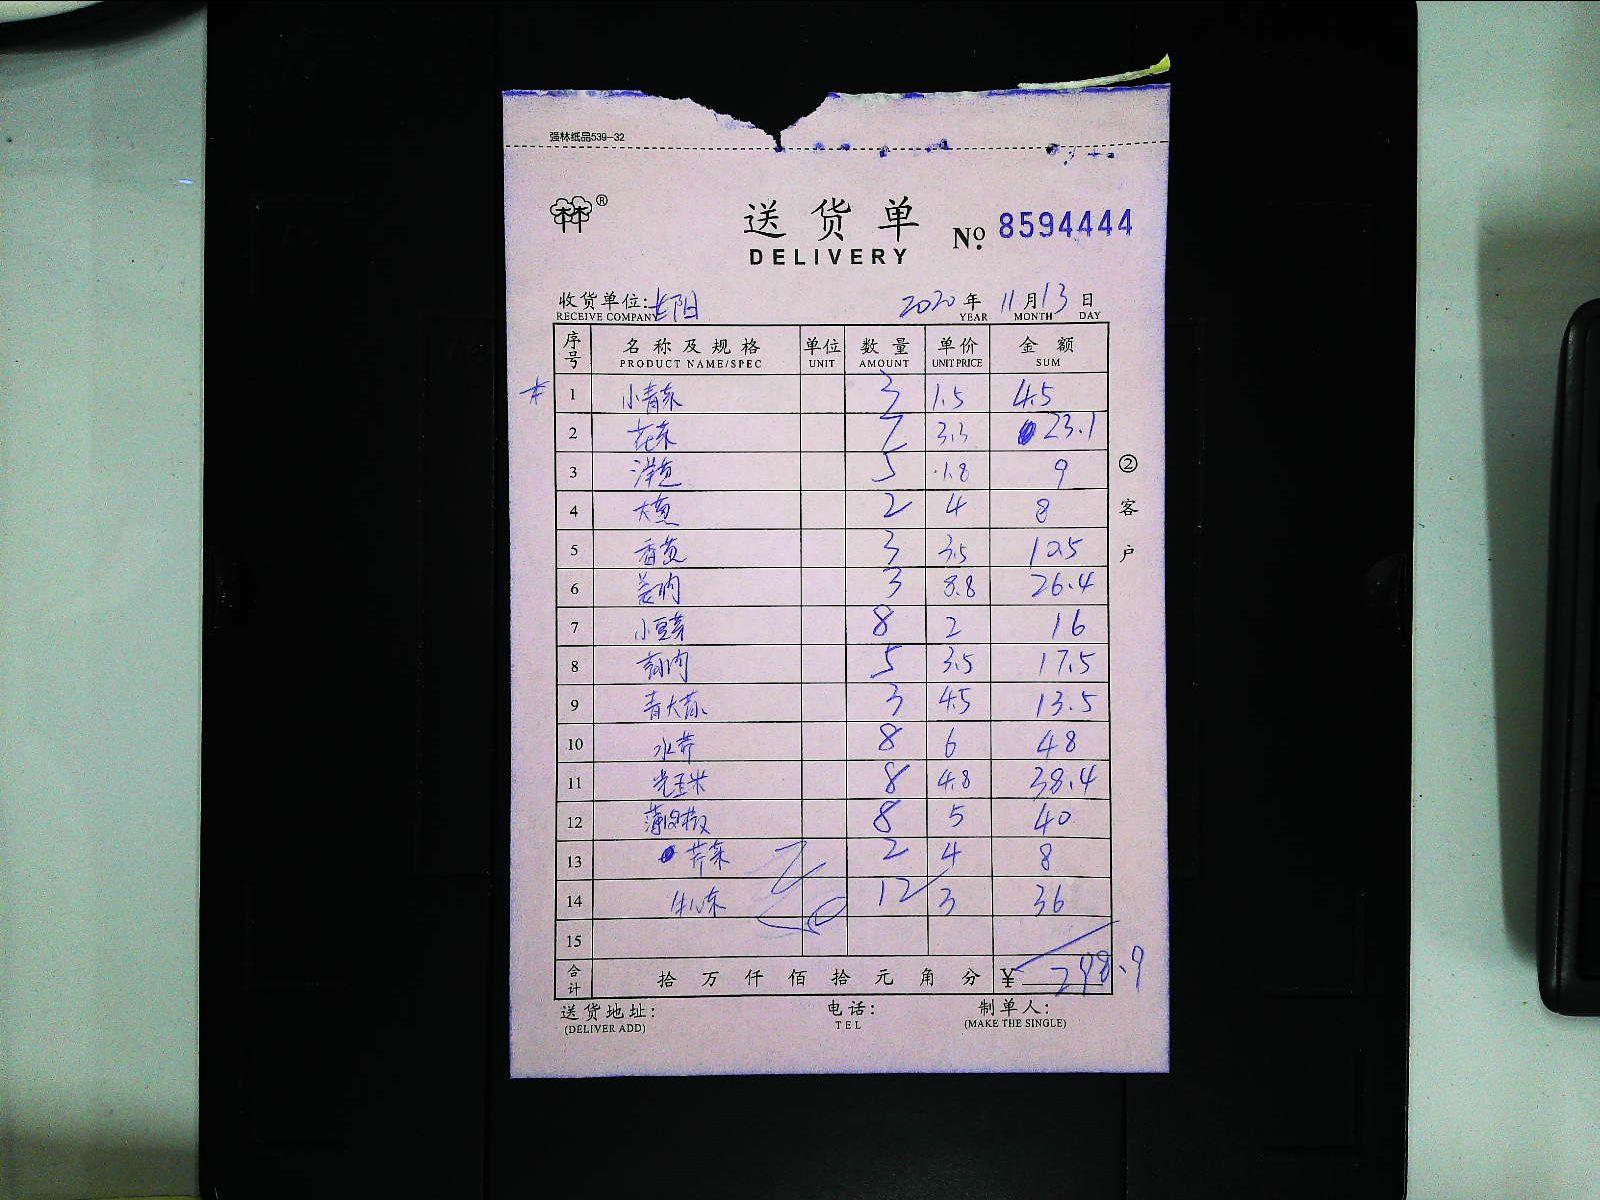 强林纸品539-32
林®
送货单 No. 8594444
DELIVERY
收货单位: 2020年11月13日
RECEIVE COMPANY YEAR MONTH DAY
序号 名称及规格 单位 数量 单价 金额
PRODUCT NAME/SPEC UNIT AMOUNT UNIT PRICE SUM
1 小青菜 3 1.5 4.5
2 花菜 7 3.3 23.1
3 洋芭 5 1.8 9
4 大葱 2 4 8
5 香黄 3 3.5 10.5
6 姜肉 3 8.8 26.4
7 小豆芽 8 2 16
8 5 3.5 17.5
9 青大蒜 3 4.5 13.5
10 水芹 8 6 48
11 光玉米 8 4.8 38.4
12 薄皮椒 8 5 40
13 芹菜 2 4 8
14 12 3 36
15
合计 拾万仟佰拾元角分 ¥ 298.9
送货地址: 电话: 制单人:
(DELIVER ADD) TEL (MAKE THE SINGLE)
②客户